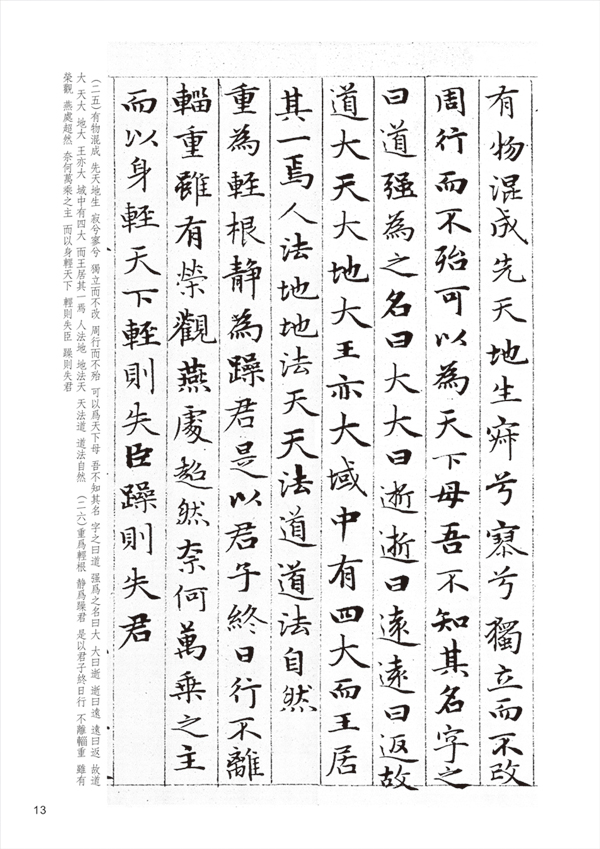 有物混成先天地生寂兮寥兮獨立而不改
周行而不殆可以為天下母吾不知其名字之
曰道强為之名曰大大曰逝逝曰遠遠曰返故
道大天大地大王亦大域中有四大而王居
其一焉人法地地法天天法道道法自然
重為輕根静為躁君是以君子終日行不離
輜重雖有榮觀燕處超然奈何萬乘之主
而以身輕天下輕則失臣躁則失君
(二五)有物混成 先天地生 寂兮寥兮 獨立而不改 周行而不殆 可以爲天下母 吾不知其名 字之曰道 强爲之名曰大 大曰逝 逝曰遠 遠曰返 故道
大 天大 地大 王亦大 域中有四大 而王居其一焉 人法地 地法天 天法道 道法自然 (二六)重爲輕根 静爲躁君 是以君子終日行 不離輜重 雖有
榮觀 燕處超然 奈何萬乘之主 而以身輕天下 輕則失臣 躁則失君
13